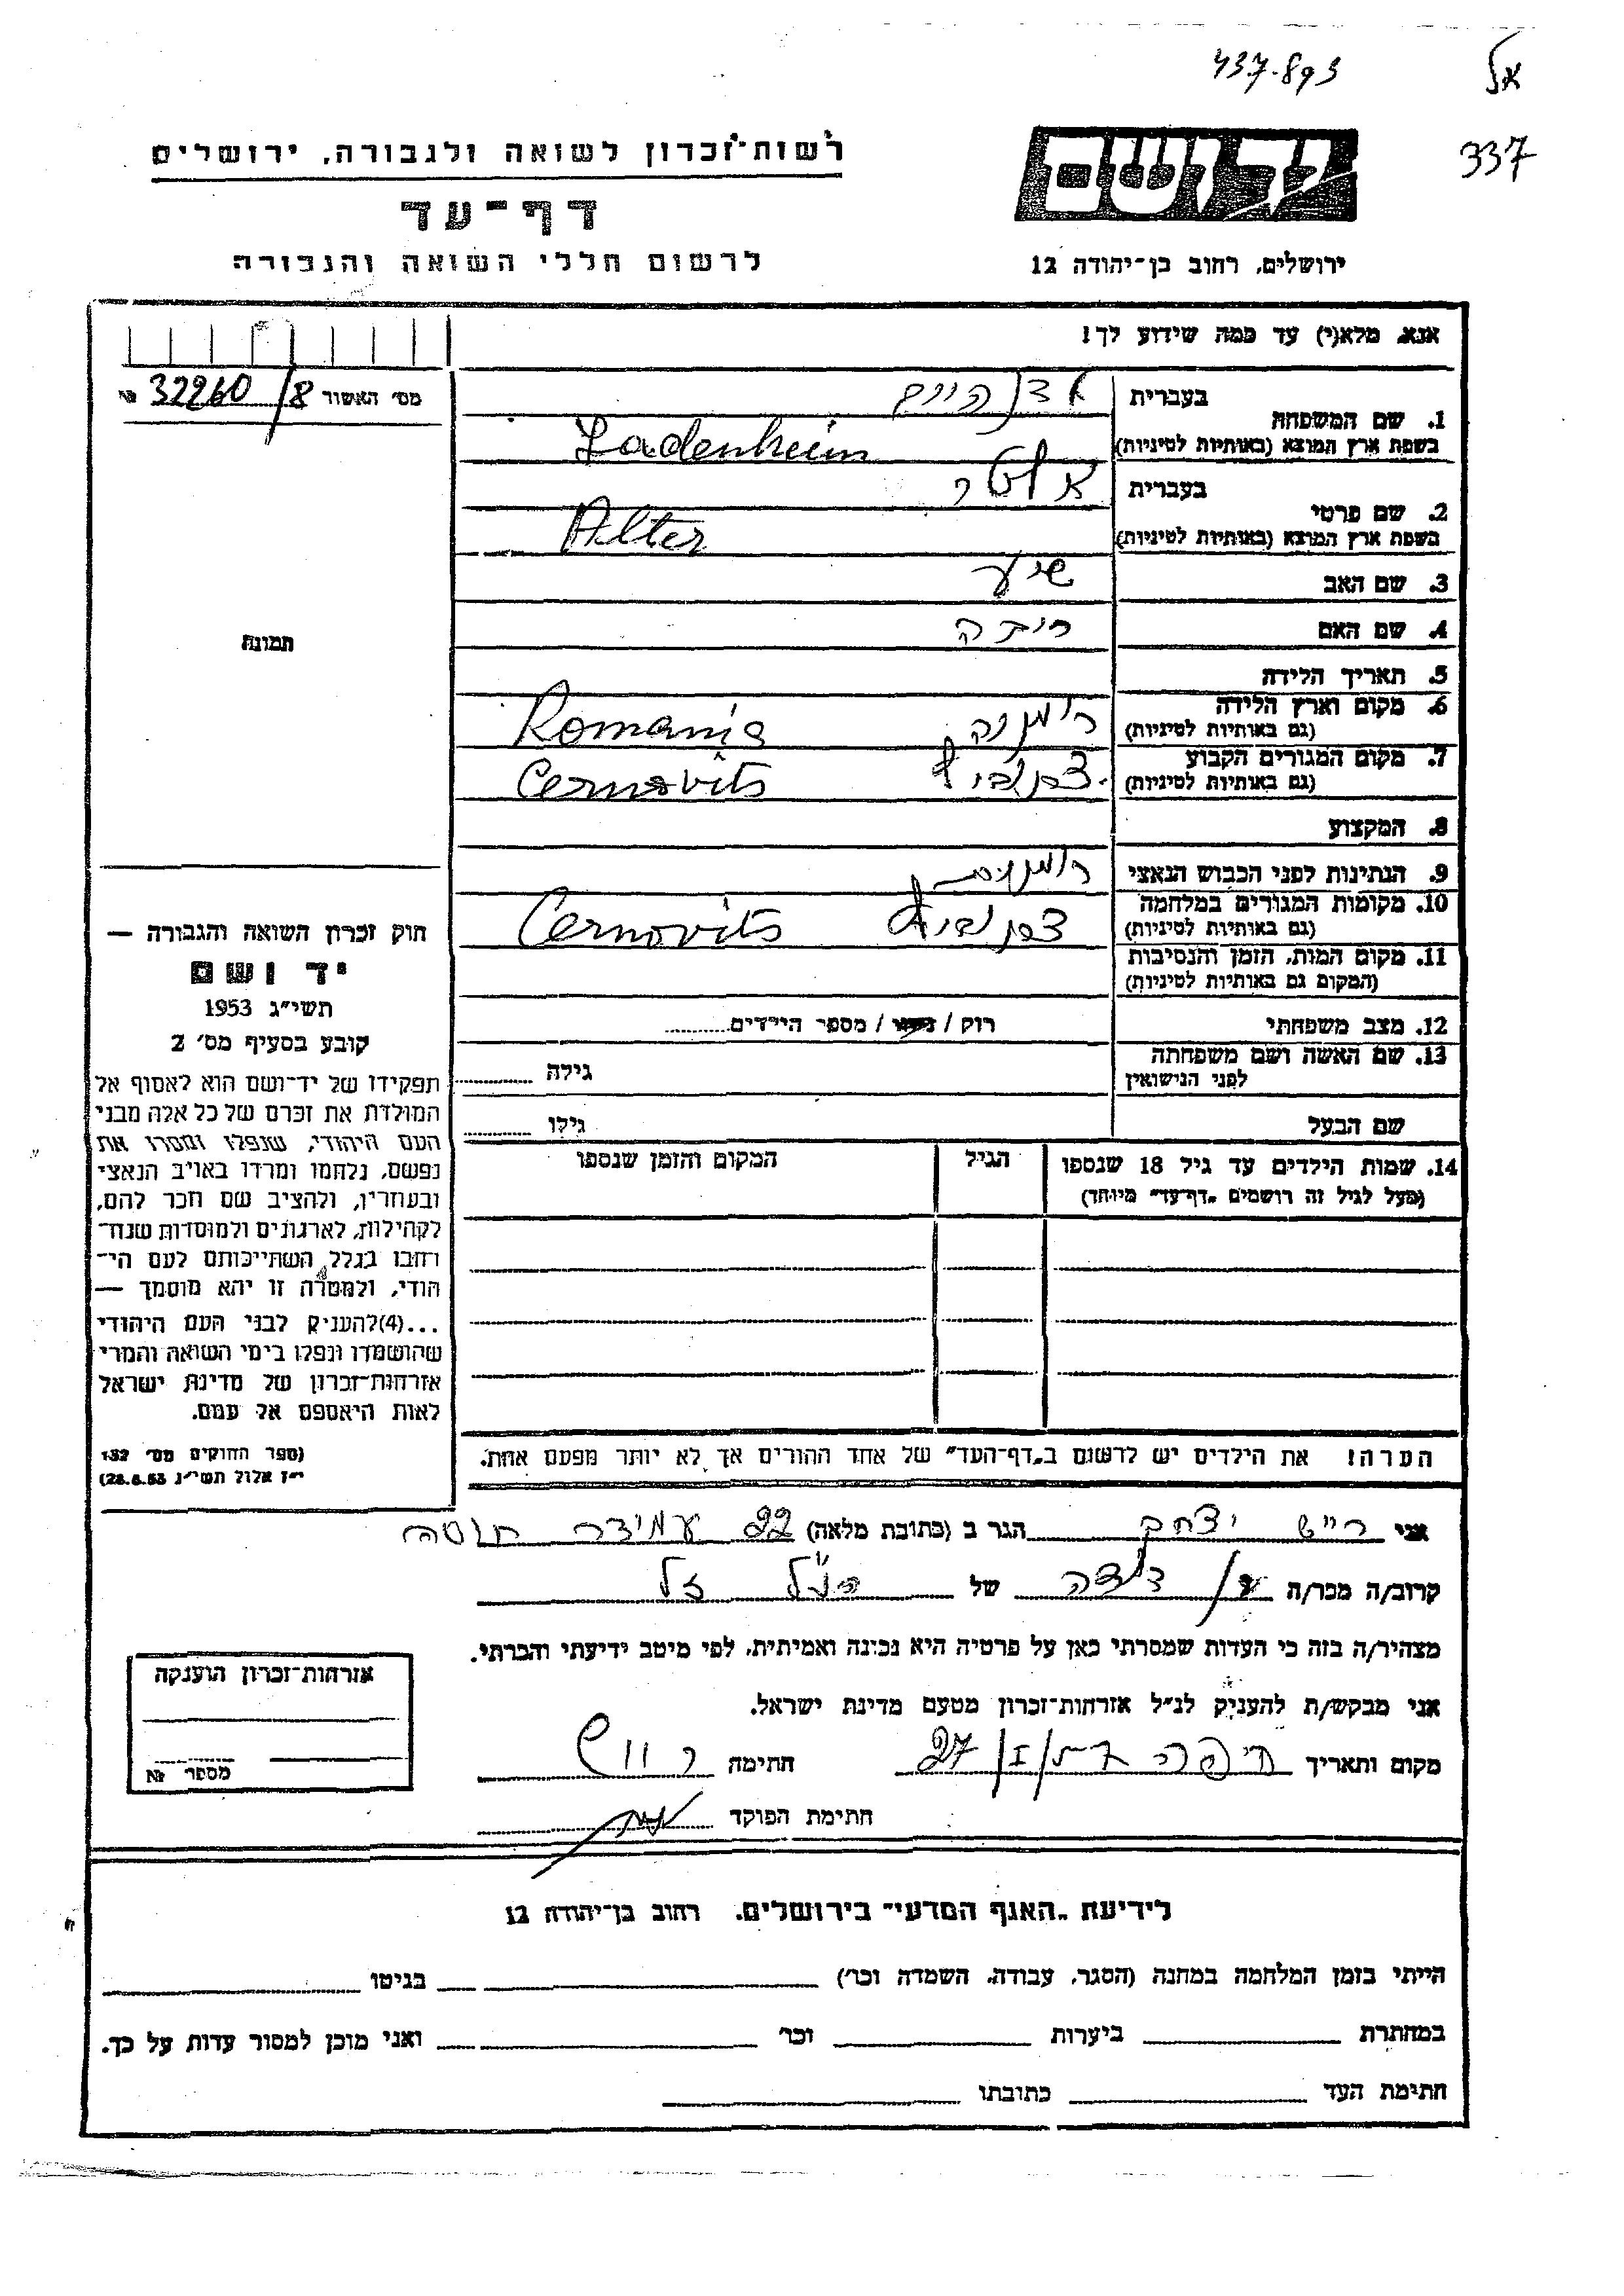 437-893
אל
337
יד ושם
ירושלים, רחוב בן-יהודה 12
רשות-זכרון לשואה ולגבורה, ירושלים
דף-עד
לרשום חללי השואה והגבורה
אנא, מלא(י) עד כמה שידוע לך!
מס' האשור 8/32260 №
תמונה
1. שם המשפחה
בעברית
בשפת ארץ המוצא (באותיות לטיניות) Ladenheim
2. שם פרטי
בעברית אלטר
בשפת ארץ המוצא (באותיות לטיניות) Alter
3. שם האב
4. שם האם
5. תאריך הלידה
6. מקום וארץ הלידה רומניה Romania
(גם באותיות לטיניות)
7. מקום המגורים הקבוע צרנוביץ Cernovits
(גם באותיות לטיניות)
8. המקצוע
9. הנתינות לפני הכבוש הנאצי
10. מקומות המגורים במלחמה צרנוביץ Cernovits
(גם באותיות לטיניות)
11. מקום המות, הזמן והנסיבות
(המקום גם באותיות לטיניות)
12. מצב משפחתי רוק / נשוי / מספר הילדים
13. שם האשה ושם משפחתה
לפני הנישואין
גילה
שם הבעל גילו
14. שמות הילדים עד גיל 18 שנספו
(מעל לגיל זה רושמים "דף-עד" מיוחד)
הגיל
המקום והזמן שנספו
הערה! את הילדים יש לרשום ב"דף-העד" של אחד ההורים אך לא יותר מפעם אחת.
חוק זכרון השואה והגבורה —
יד ושם
תשי"ג 1953
קובע בסעיף מס' 2
תפקידו של יד-ושם הוא לאסוף אל
המולדת את זכרם של כל אלה מבני
העם היהודי, שנפלו ומסרו את
נפשם, נלחמו ומרדו באויב הנאצי
ובעוזריו, ולהציב שם וזכר להם,
לקהילות, לארגונים ולמוסדות שנח-
רבו בגלל השתייכותם לעם הי-
הודי, ולמטרה זו יהא מוסמך —
...(4)להעניק לבני העם היהודי
שהושמדו ונפלו בימי השואה והמרי
אזרחות-זכרון של מדינת ישראל
לאות היאספם אל עמם.
(ספר החוקים מס' 132
י"ז אלול תשי"ג 28.8.53)
אני רייש יצחק הגר ב (כתובת מלאה) 22
קרוב/ה מכר/ה של הנ"ל ז"ל
מצהיר/ה בזה כי העדות שמסרתי כאן על פרטיה היא נכונה ואמיתית, לפי מיטב ידיעתי והכרתי.
אני מבקש/ת להעניק לנ"ל אזרחות-זכרון מטעם מדינת ישראל.
מקום ותאריך חיפה 27 חתימה
חתימת הפוקד
אזרחות-זכרון הוענקה
מספר №
לידיעת "האגף המדעי" בירושלים, רחוב בן-יהודה 12
הייתי בזמן המלחמה במחנה (הסגר, עבודה, השמדה וכו') בגיטו
במחתרת ביערות וכו' ואני מוכן למסור עדות על כך.
חתימת העד כתובתו